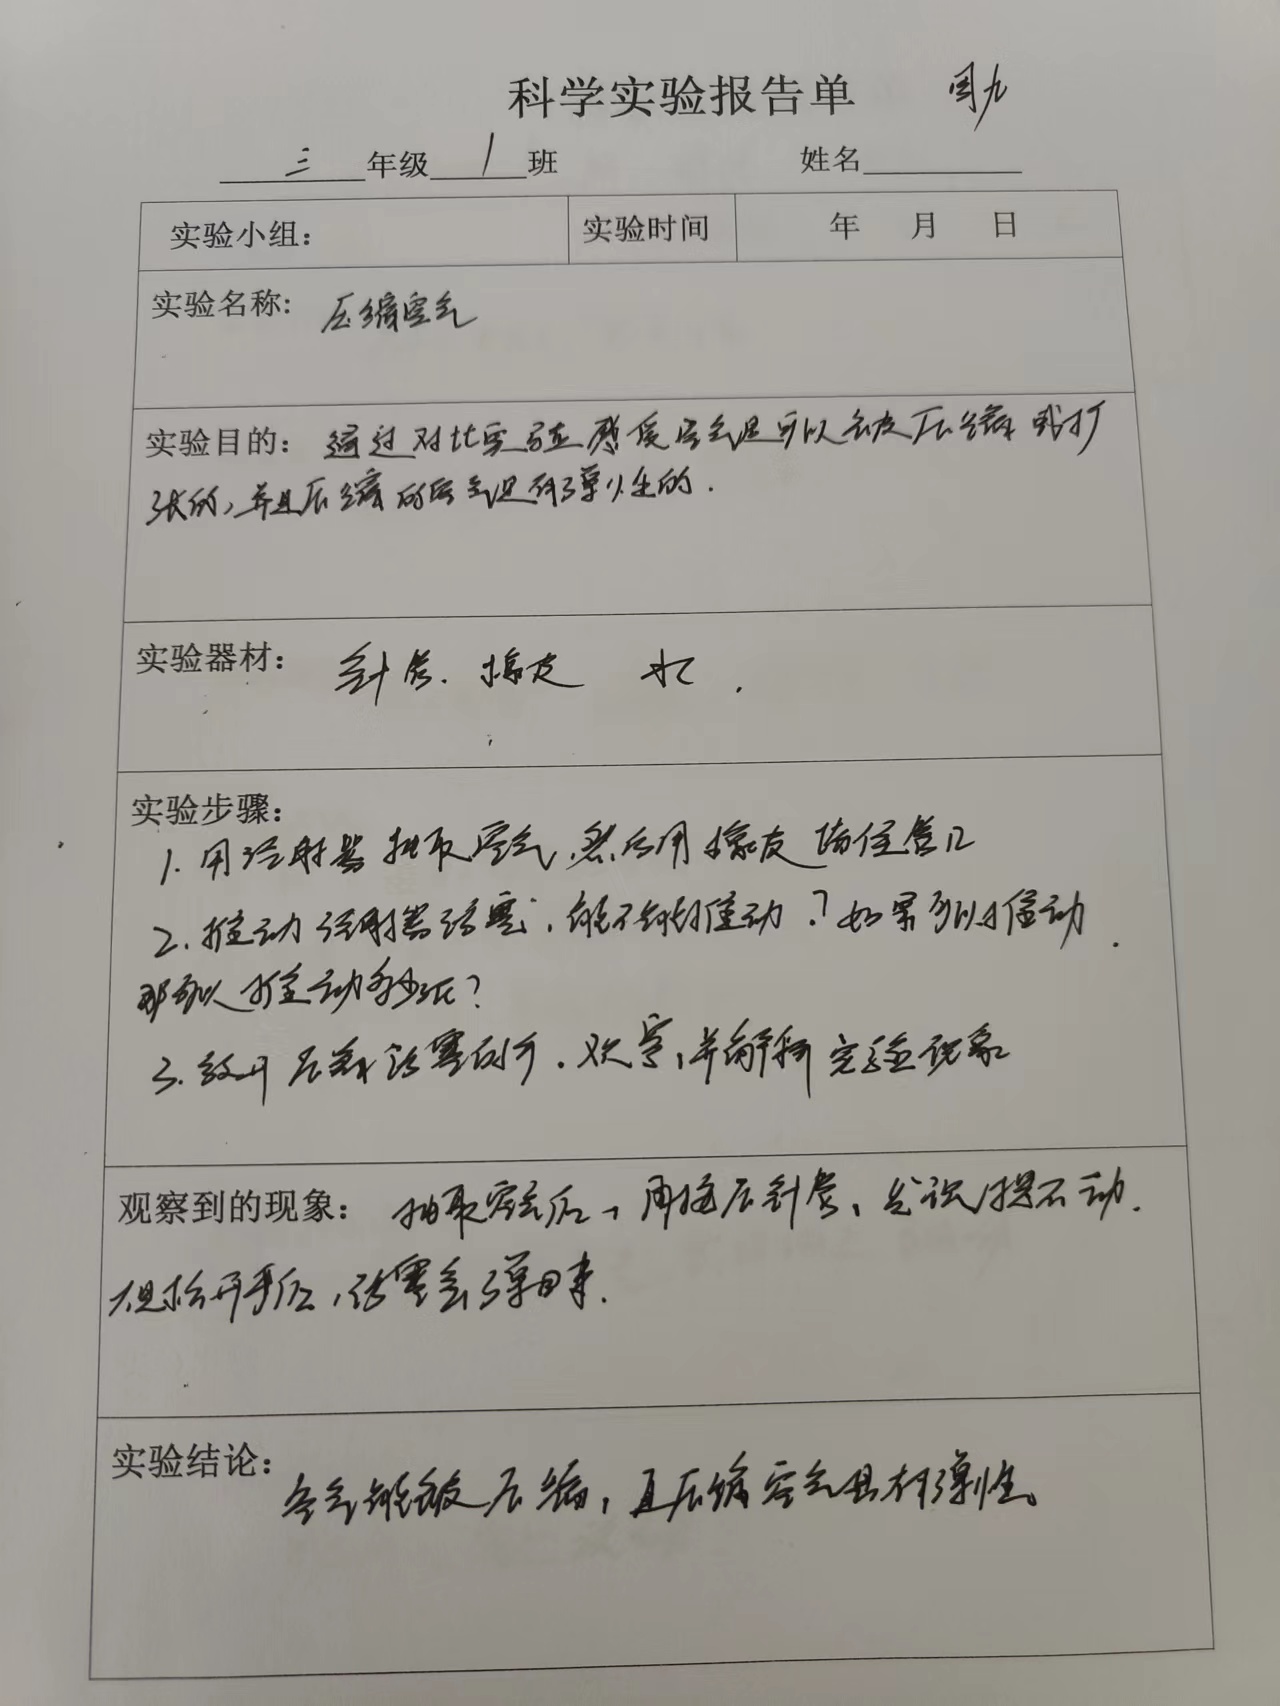 科学实验报告单 周九
三年级1班 姓名
实验小组： 实验时间 年 月 日
实验名称： 压缩空气
实验目的： 通过对比实验感受空气是可以被压缩或扩
张的，并且压缩的空气是有弹性的.
实验器材： 针管. 橡皮 水.
实验步骤：
1. 用注射器抽取空气,然后用橡皮堵住管口
2. 推动注射器活塞,能不能推动?如果可以推动
那可以推动多少?
3. 放开压 活塞的手. 观察,并解释实验现象
观察到的现象： 抽取空气后,再 压针管, 不动.
但松开手后,活塞会弹回来.
实验结论： 空气能被压缩,且压缩空气具有弹性。